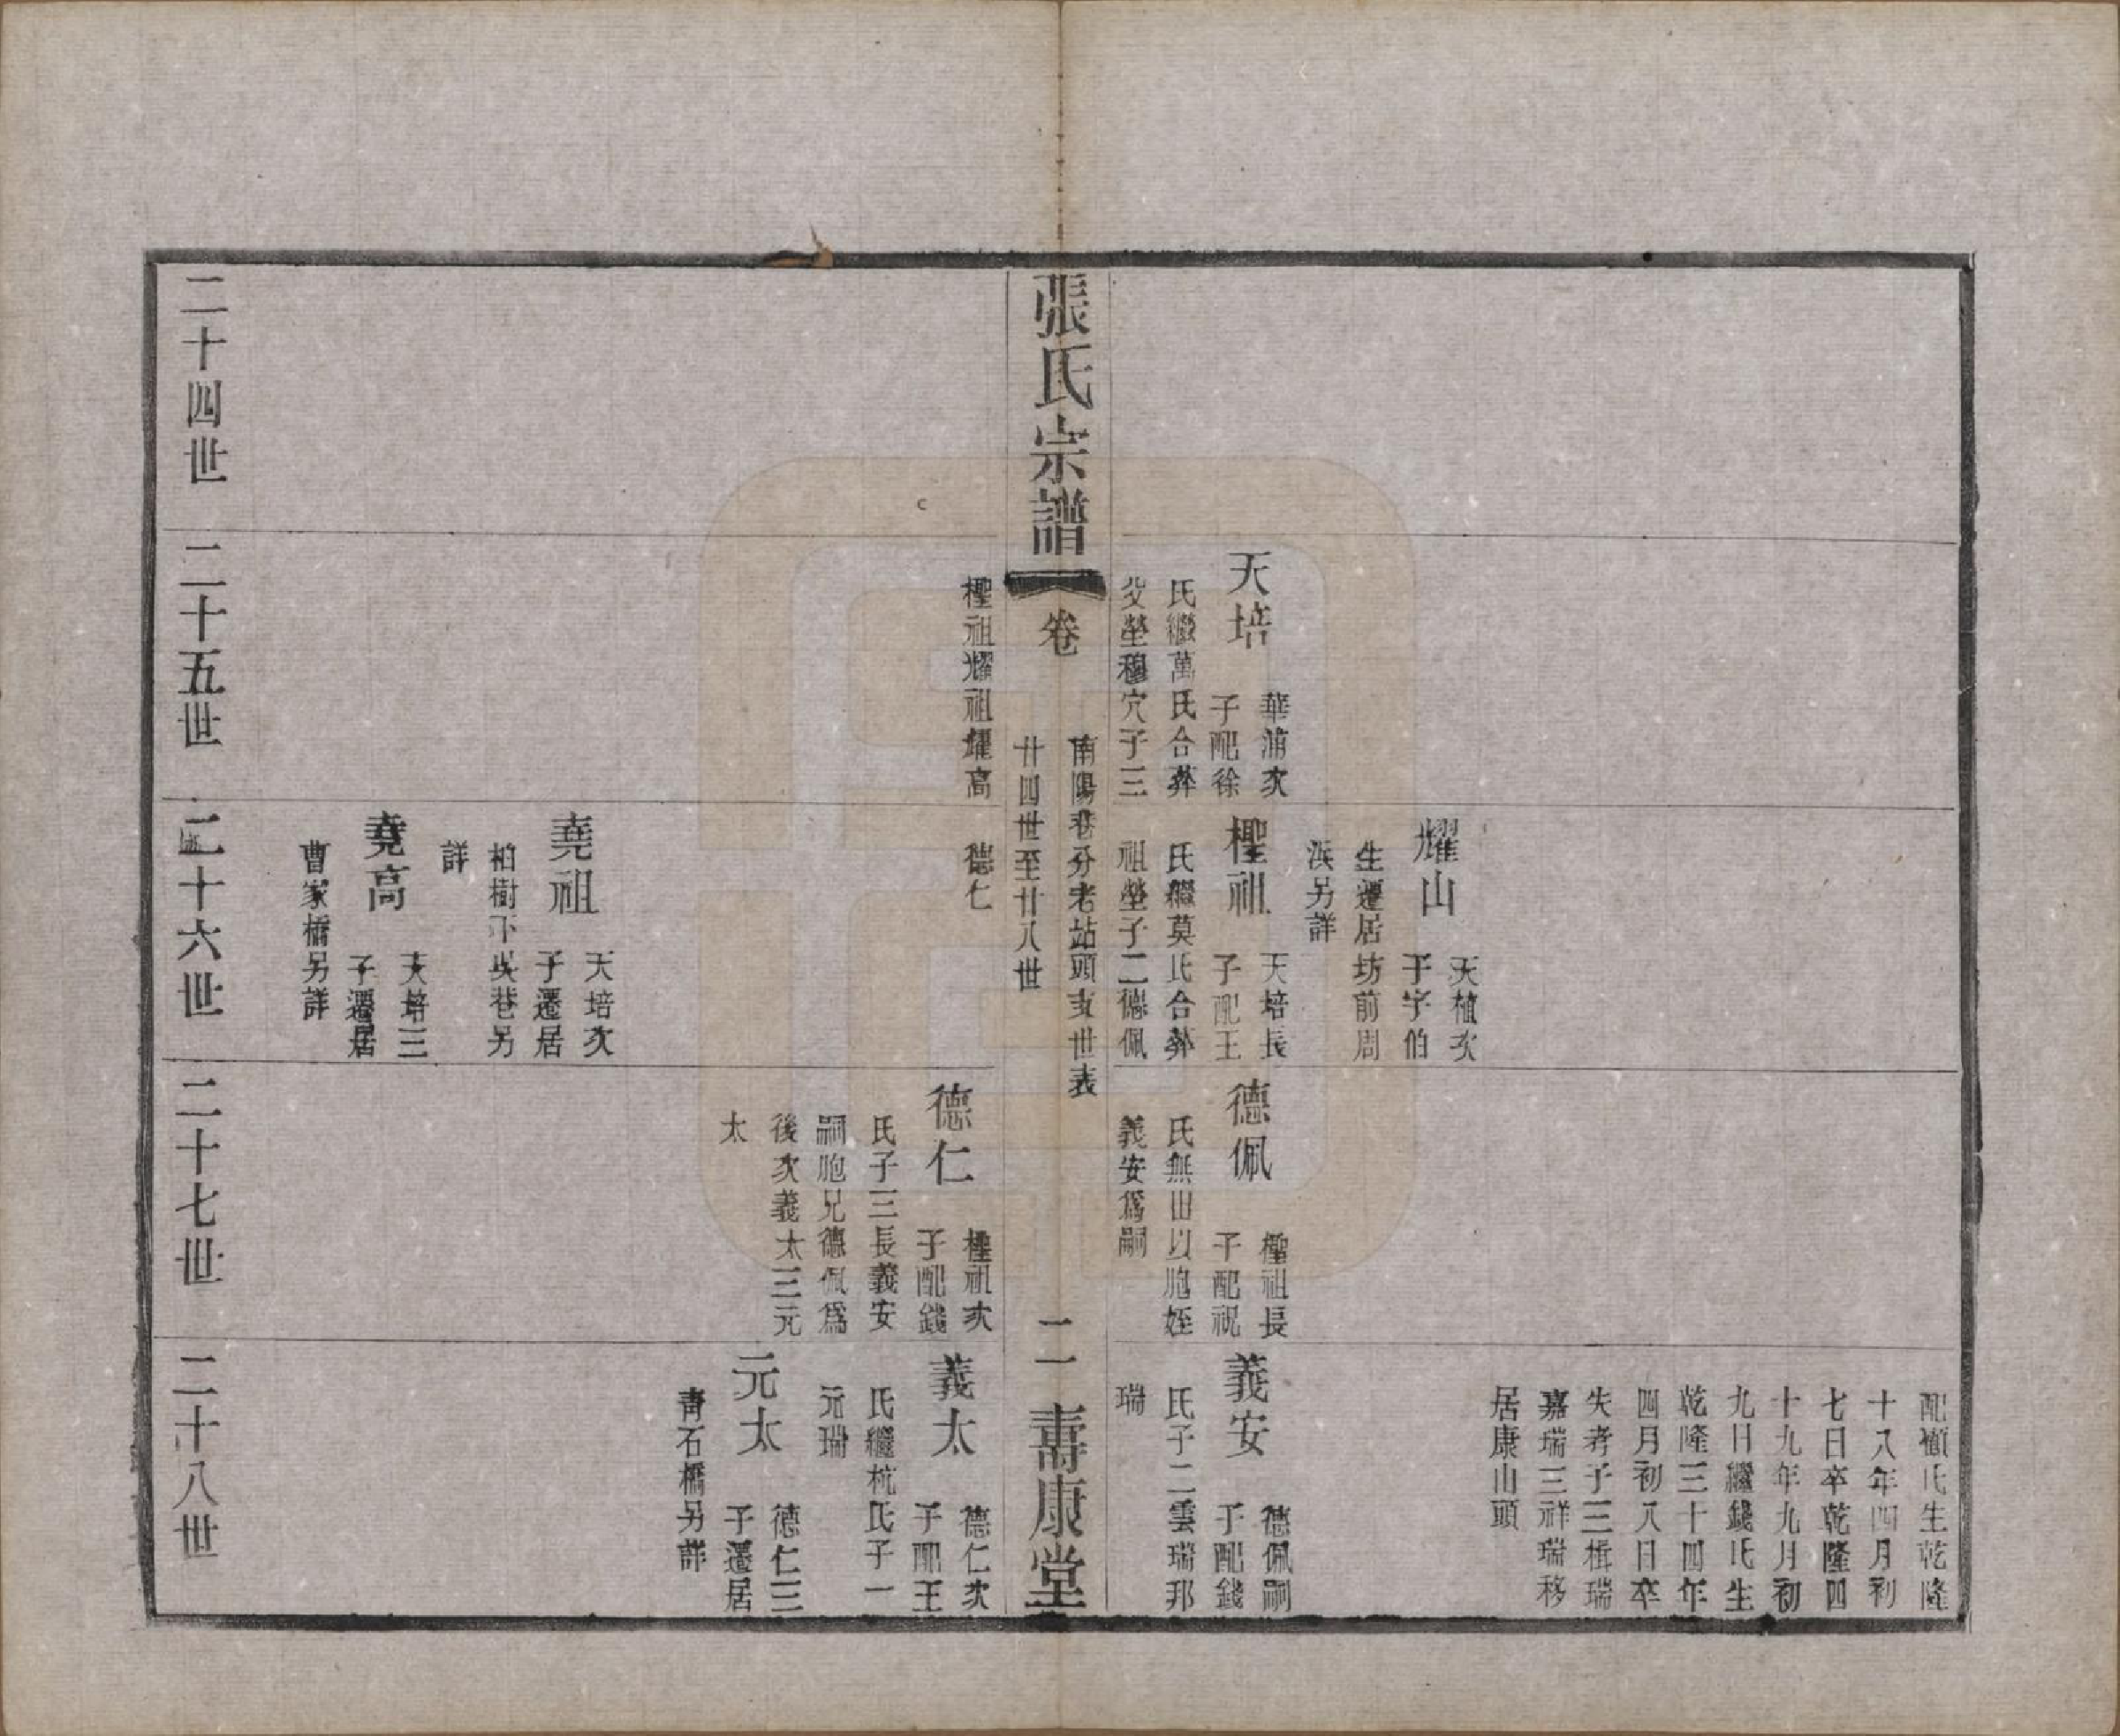 配顧氏生乾隆
十八年四月初
七日卒乾隆四
十九年九月初
九日繼錢氏生
乾隆三十四年
四月初八日卒
失考子三楫瑞
嘉瑞三祥瑞移
居康山頭
耀山
天植次
子字伯
生遷居坊前周
浜另詳
天培
華浦次
子配徐
氏繼萬氏合葬
父塋穆穴子三
檉祖
天培長
子配王
氏繼莫氏合葬
祖塋子二德佩
德佩
檉祖長
子配祝
氏無出以胞姪
義安爲嗣
義安
德佩嗣
子配錢
氏子二雲瑞邦
瑞
張氏宗譜
卷
南陽巷分老站頭支世表
廿四世至廿八世
二
壽康堂
檉祖耀祖耀高
德仁
德仁
檉祖次
子配錢
氏子三長義安
嗣胞兄德佩爲
後次義太三元
太
義太
德仁次
子配王
氏繼杭氏子一
元瑞
元太
德仁三
子遷居
青石橋另詳
堯祖
天培次
子遷居
柏樹下吳巷另
詳
堯高
天培三
子遷居
曹家橋另詳
二十四世
二十五世
二十六世
二十七世
二十八世